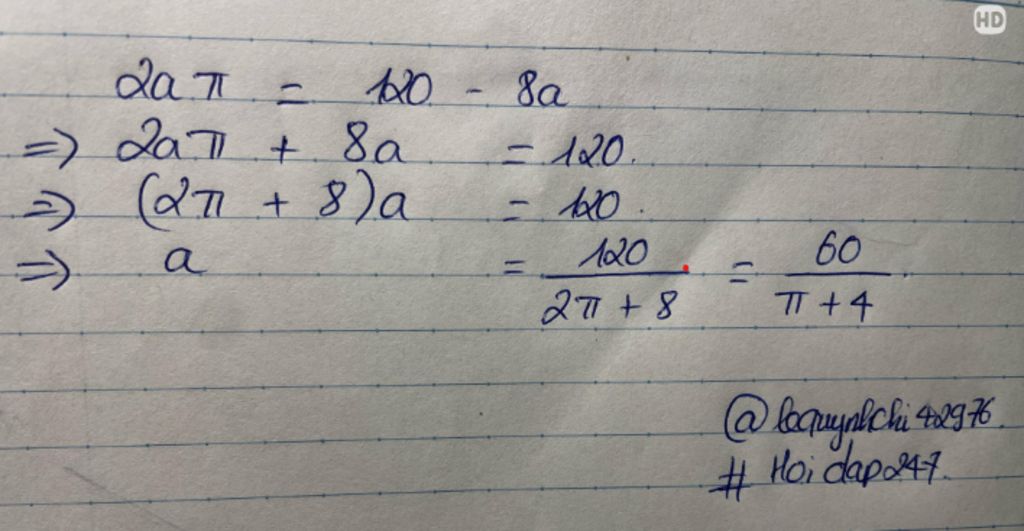 HD
2aπ = 120 - 8a
=> 2aπ + 8a = 120.
=> (2π + 8)a = 120.
=> a = 120/(2π + 8) = 60/(π + 4).
@lequynhchi42976
# Hoidap247.